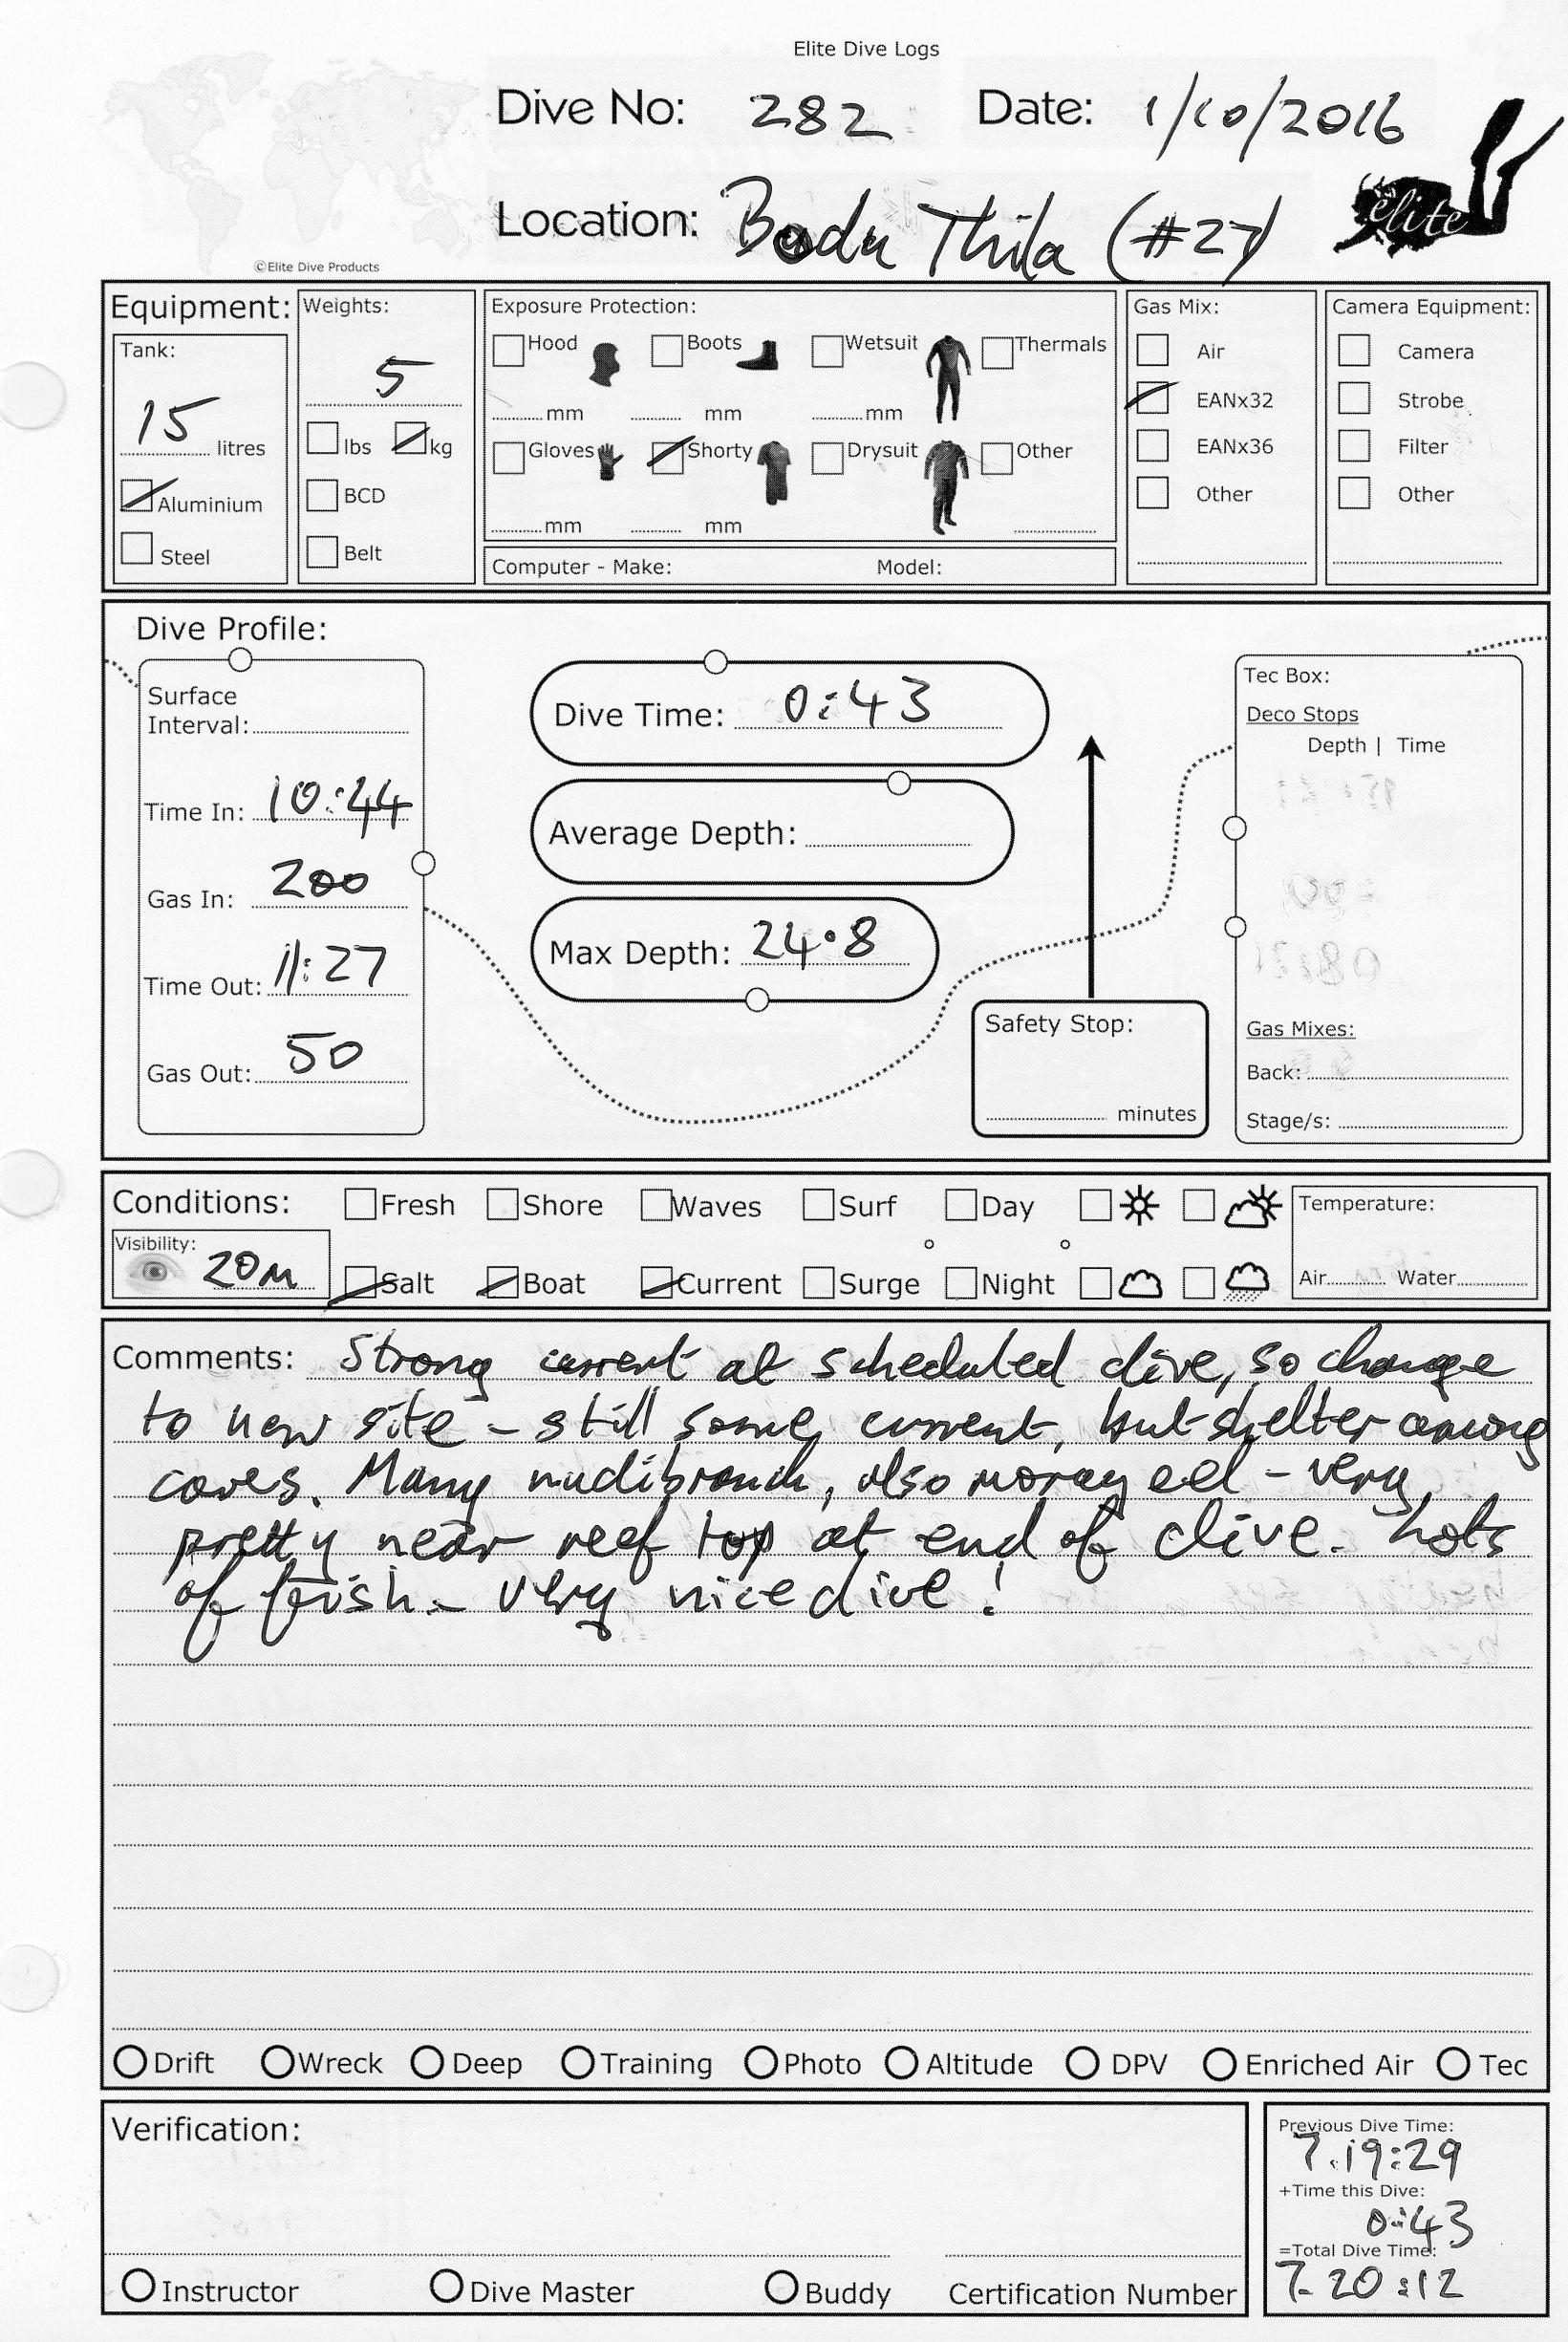 Elite Dive Logs
Dive No: 282 Date: 1/10/2016
Location: Bodu Thila (#27)
elite
©Elite Dive Products
Equipment: Weights: Exposure Protection: Gas Mix: Camera Equipment:
Tank: Hood Boots Wetsuit Thermals Air Camera
5 mm mm mm EANx32 Strobe
15 litres lbs kg Gloves Shorty Drysuit Other EANx36 Filter
Aluminium BCD Other Other
mm mm
Steel Belt Computer - Make: Model:
Dive Profile:
Surface
Interval:
Time In: 10:44
Gas In: 200
Time Out: 11:27
Gas Out: 50
Dive Time: 0:43
Average Depth:
Max Depth: 24.8
Safety Stop:
minutes
Tec Box:
Deco Stops
Depth | Time
Gas Mixes:
Back:
Stage/s:
Conditions: Fresh Shore Waves Surf Day Temperature:
Visibility: 20m Salt Boat Current Surge Night Air Water
Comments: Strong current at scheduled dive, so change
to new site - still some current, but shelter among
caves. Many nudibranch, also moray eel - very
pretty near reef top at end of dive. Lots
of fish - very nice dive!
Drift Wreck Deep Training Photo Altitude DPV Enriched Air Tec
Verification:
Instructor Dive Master Buddy Certification Number
Previous Dive Time:
7.19:29
+Time this Dive:
0:43
=Total Dive Time:
7.20:12